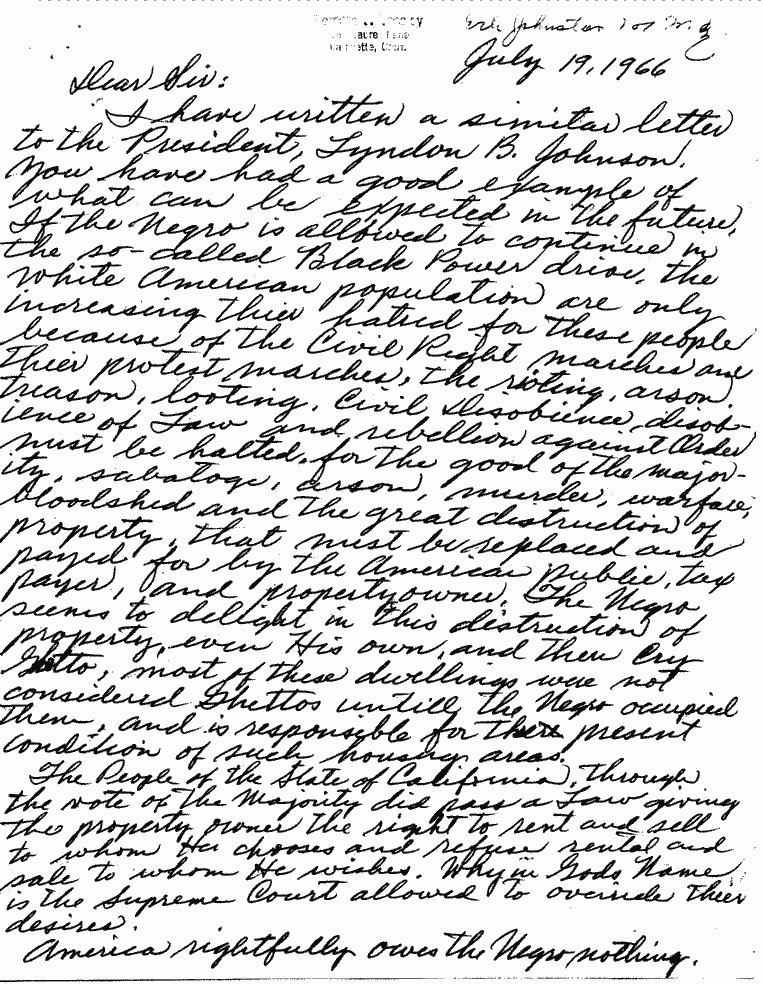 July 19, 1966
Dear Sir:
I have written a similar letter
to the President, Lyndon B. Johnson.
You have had a good example of
what can be expected in the future,
If the Negro is allowed to continue in
the so-called Black Power drive, the
White American population are only
increasing thier hatred for these people
because of the Civil Right marches and
thier protest marches, the rioting, arson,
treason, looting, Civil Disobience, disob-
ience of Law and rebellion against Order
must be halted, for the good of the major-
ity, sabatoge, arson, murder, warfare,
bloodshed and the great distruction of
property, that must be replaced and
payed for by the American public, tax
payer, and property owner. The Negro
seems to delight in this distruction of
property, even His own, and then cry
Ghetto, most of these dwellings were not
considered Ghettos untill the Negro occupied
them, and is responsible for there present
condition of such housing areas.
The People of the State of California, through
the vote of the Majority did pass a Law giving
the property owner the right to rent and sell
to whom He chooses and refuse rental and
sale to whom He wishes. Why in Gods Name
is the Supreme Court allowed to override their
desires.
America rightfully owes the Negro nothing.